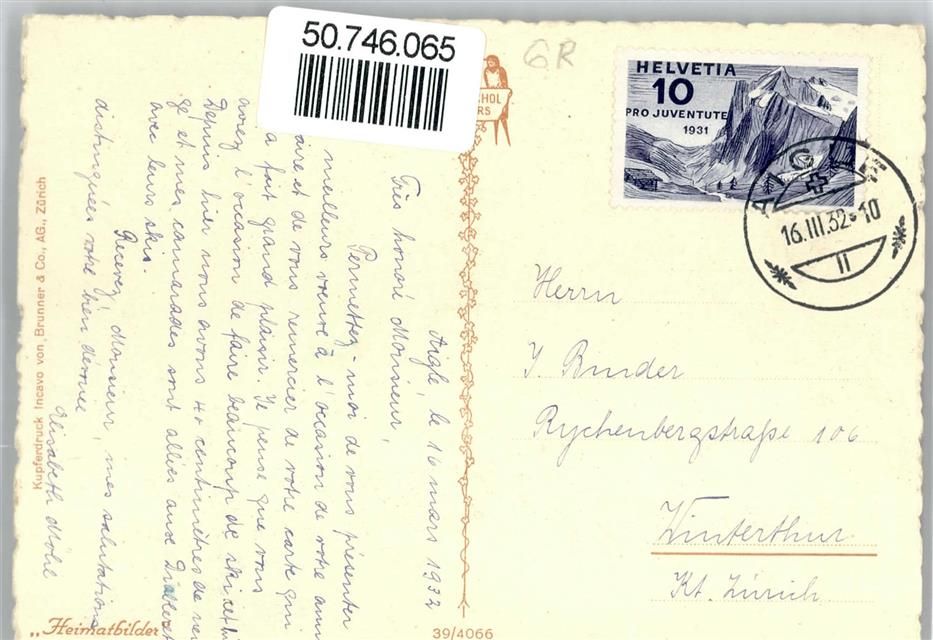 50.746.065
GR
HOL
RS
HELVETIA
10
PRO JUVENTUTE
1931
AIGLE
16.III.32-10
II
Herrn
J. Binder
Rychenbergstraße 106
Winterthur
Kt. Zürich
Aigle, le 16 mars 1932
Très honoré Monsieur,
Permettez-moi de vous présenter
meilleurs voeux à l'occasion de votre
aire et de vous remercier de votre carte qui
a fait grand plaisir. Je pense que vous
avez l'occasion de faire beaucoup de ski
Depuis hier nous avons 40 centimètres de
ge et mes camarades sont allées aux
avec leurs skis.
Recevez, Monsieur, mes salutations
distinguées votre bien dévouée
Elisabeth
Kupferdruck Incavo von Brunner & Co., AG., Zürich
„Heimatbilder
39/4066